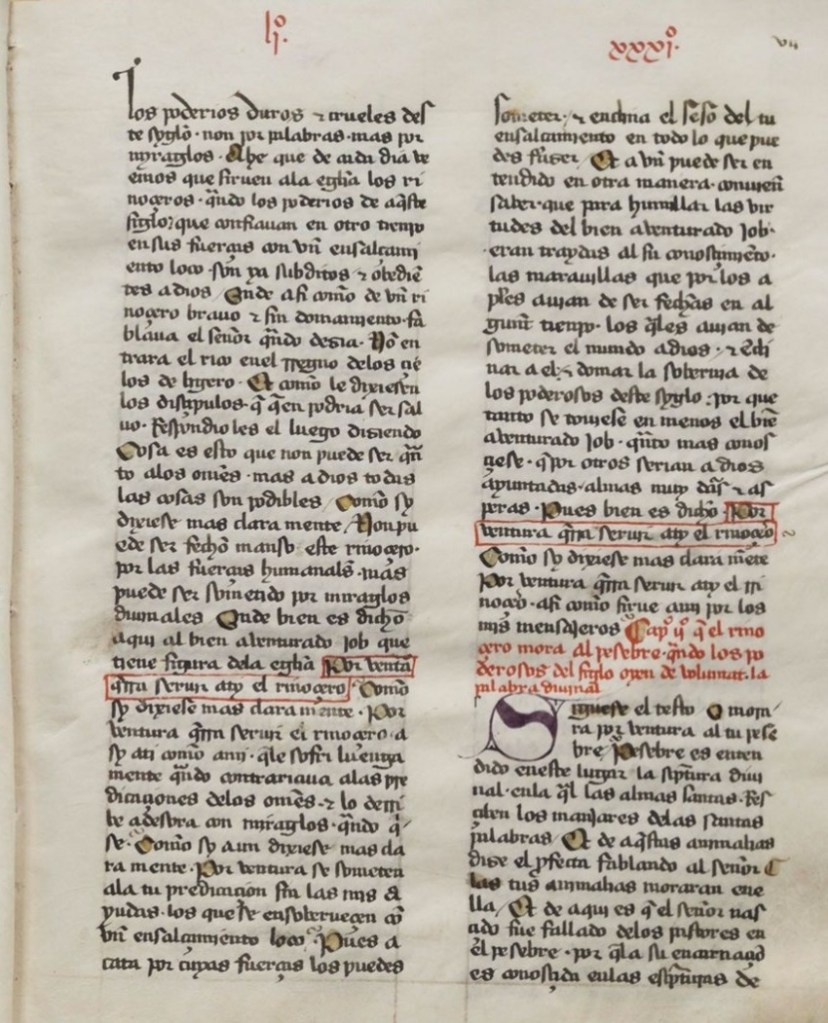 lio.
xxxio.
vii
los poderios duros & crueles des
te syglo · non por palabras · mas por
myraglos · Ahe que de cada dia ve
emos que siruen ala eglia los ri
noçeros · qndo los poderios de aqste
siglo que confiauan en otro tienpo
en sus fuerças con vn ensalcami
ento loco · son ya subditos & obedie
tes a dios / Onde asi como de vn ri
noçero brauo & sin domamiento · fa
blaua el señor qndo dezia · No en
trara el rico enel rregno delos çie
los de ligero · Et como le dixiesen
los disçipulos · q qen podria ser sal
uo · Respondio les el luego diziendo
Cosa es esto que non puede ser qn
to alos omes · mas a dios todas
las cosas son posibles / Como sy
dixiese mas clara mente / Non pu
ede ser fecho manso este rinoçero ·
por las fuerças humanals · mas
puede ser sometido por miraglos
diuinales Onde bien es dicho
aqui al bien auenturado iob que
tiene figura dela eglia Por venta
qrra seruir aty el rinoçero / Como
sy dixiese mas clara mente · Por
ventura qrra seruir el rinoçero · a
sy ati como a mi · qle sofri luenga
mente qndo contrariaua alas pre
dicaçiones delos omes · & lo derri
be a desora con miraglos · qndo q
se · Como sy aun dixiese mas cla
ra mente · Por ventura se someten
ala tu predicaçion sin las mis a
yudas · los que se ensoberueçen co
vn ensalcamiento loco / Pues a
cata por cuyas fuerças los puedes
someter · & enclina el seso del tu
ensalcamiento en todo lo que pue
des fazer / Et a vn puede ser en
tendido en otra manera · conuien
saber · que para humillar las vir
tudes del bien auenturado iob ·
eran traydas al su conosçimieto ·
las marauillas que por los a
ples auian de ser fechas en al
gunt tienpo · los qles auian de
someter el mundo a dios · & ecli
nar a el · & domar la soberuia de
los poderosos deste syglo · por que
tanto se touiese en menos el bie
auenturado iob · qnto mas conos
çiese · q por otros serian a dios
ayuntadas · almas muy duras & as
peras · Pues bien es dicho · Por
ventura qrra seruir aty el rinoçero
Como sy dixiese mas clara mete
Por ventura qrra seruir aty el ri
noçero · asi como sirue a mi por los
mis mensajeros Capo ijo q el rino
çero mora al pesebre · qndo los po
derosos del siglo oyen de voluntat · la
palabra diuinal
Siguese el testo O mora
ra por ventura al tu pese
bre / Pesebre es enten
dido en este lugar la sciptura diui
nal · enla ql las almas santas · Res
çiben los manjares delas santas
palabras / Et de aqstas animalias
dize el pfecta fablando al señor
las tus animalias moraran ene
lla / Et de aqui es q el señor nas
çido fue fallado delos pastores en
el pesebre · por q la su encarnaçio
es conosçida enlas escpturas de